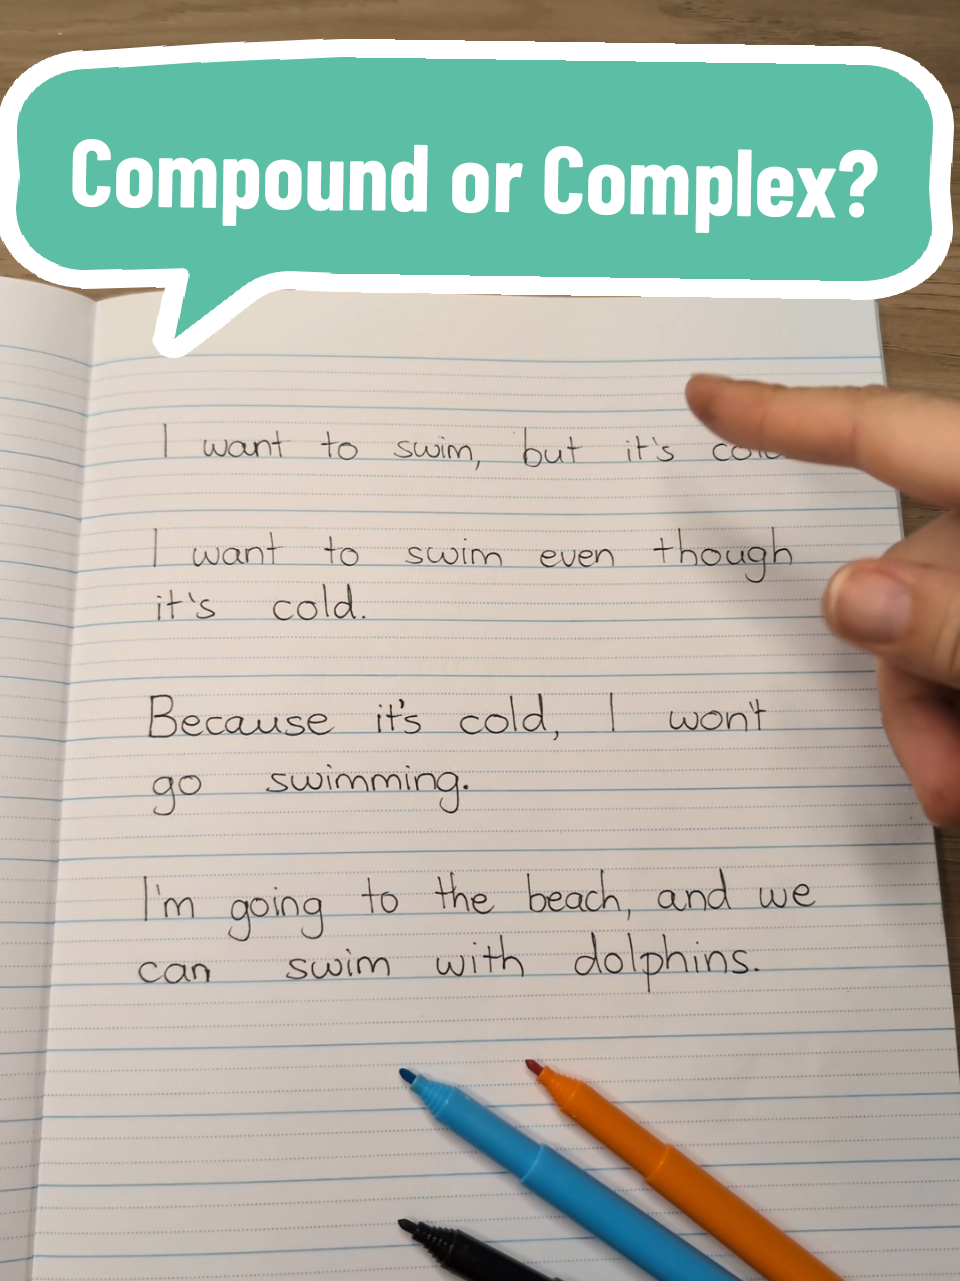 Compound or Complex?
I want to swim, but it's
I want to swim even though
it's cold.
Because it's cold, I won't
go swimming.
I'm going to the beach, and we
can swim with dolphins.